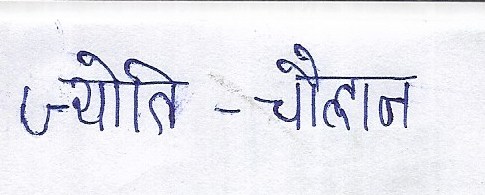 ज्योति - चौहान